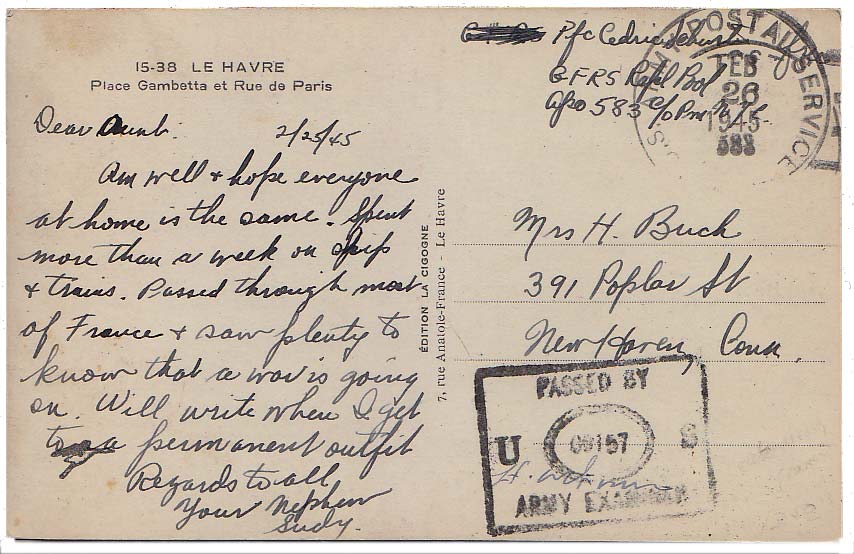 15-38 LE HAVRE
Place Gambetta et Rue de Paris
Dear Aunt. 2/25/45
Am well + hope everyone
at home is the same. Spent
more than a week on ships
+ trains. Passed through most
of France + saw plenty to
know that a war is going
on. Will write when I get
to a permanent outfit
Regards to all
Your Nephew
ÉDITION LA CIGOGNE
7, rue Anatole-France - Le Havre
Pfc
G.F.R.S.
APO 583 c/o Pm N.Y.
POSTAL SERVICE
FEB
26
1945
583
Mrs H. Buch
391 Poplar St
New Haven, Conn.
PASSED BY
U 00157 S
ARMY EXAMINER